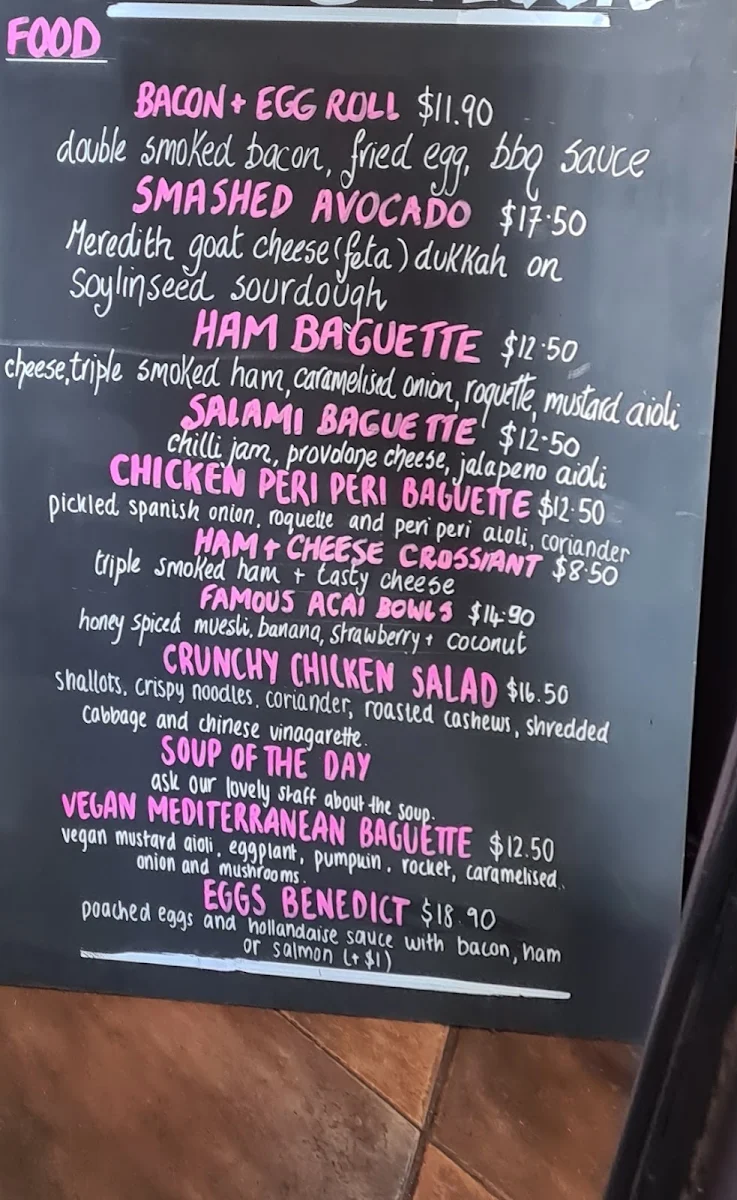 FOOD
BACON + EGG ROLL $11.90
double smoked bacon, fried egg, bbq sauce
SMASHED AVOCADO $17.50
Meredith goat cheese (feta) dukkah on
Soylinseed sourdough
HAM BAGUETTE $12.50
cheese, triple smoked ham, caramelised onion, roquette, mustard aioli
SALAMI BAGUETTE $12.50
chilli jam, provolone cheese, jalapeno aioli
CHICKEN PERI PERI BAGUETTE $12.50
pickled spanish onion, roquette and peri peri aioli, coriander
HAM + CHEESE CROSSIANT $8.50
triple smoked ham + tasty cheese
FAMOUS ACAI BOWLS $14.90
honey spiced muesli, banana, strawberry + coconut
CRUNCHY CHICKEN SALAD $16.50
shallots, crispy noodles, coriander, roasted cashews, shredded
cabbage and chinese vinagarette.
SOUP OF THE DAY
ask our lovely staff about the soup.
VEGAN MEDITERRANEAN BAGUETTE $12.50
vegan mustard aioli, eggplant, pumpkin, rocket, caramelised
onion and mushrooms.
EGGS BENEDICT $18.90
poached eggs and hollandaise sauce with bacon, ham
or salmon (+ $1)